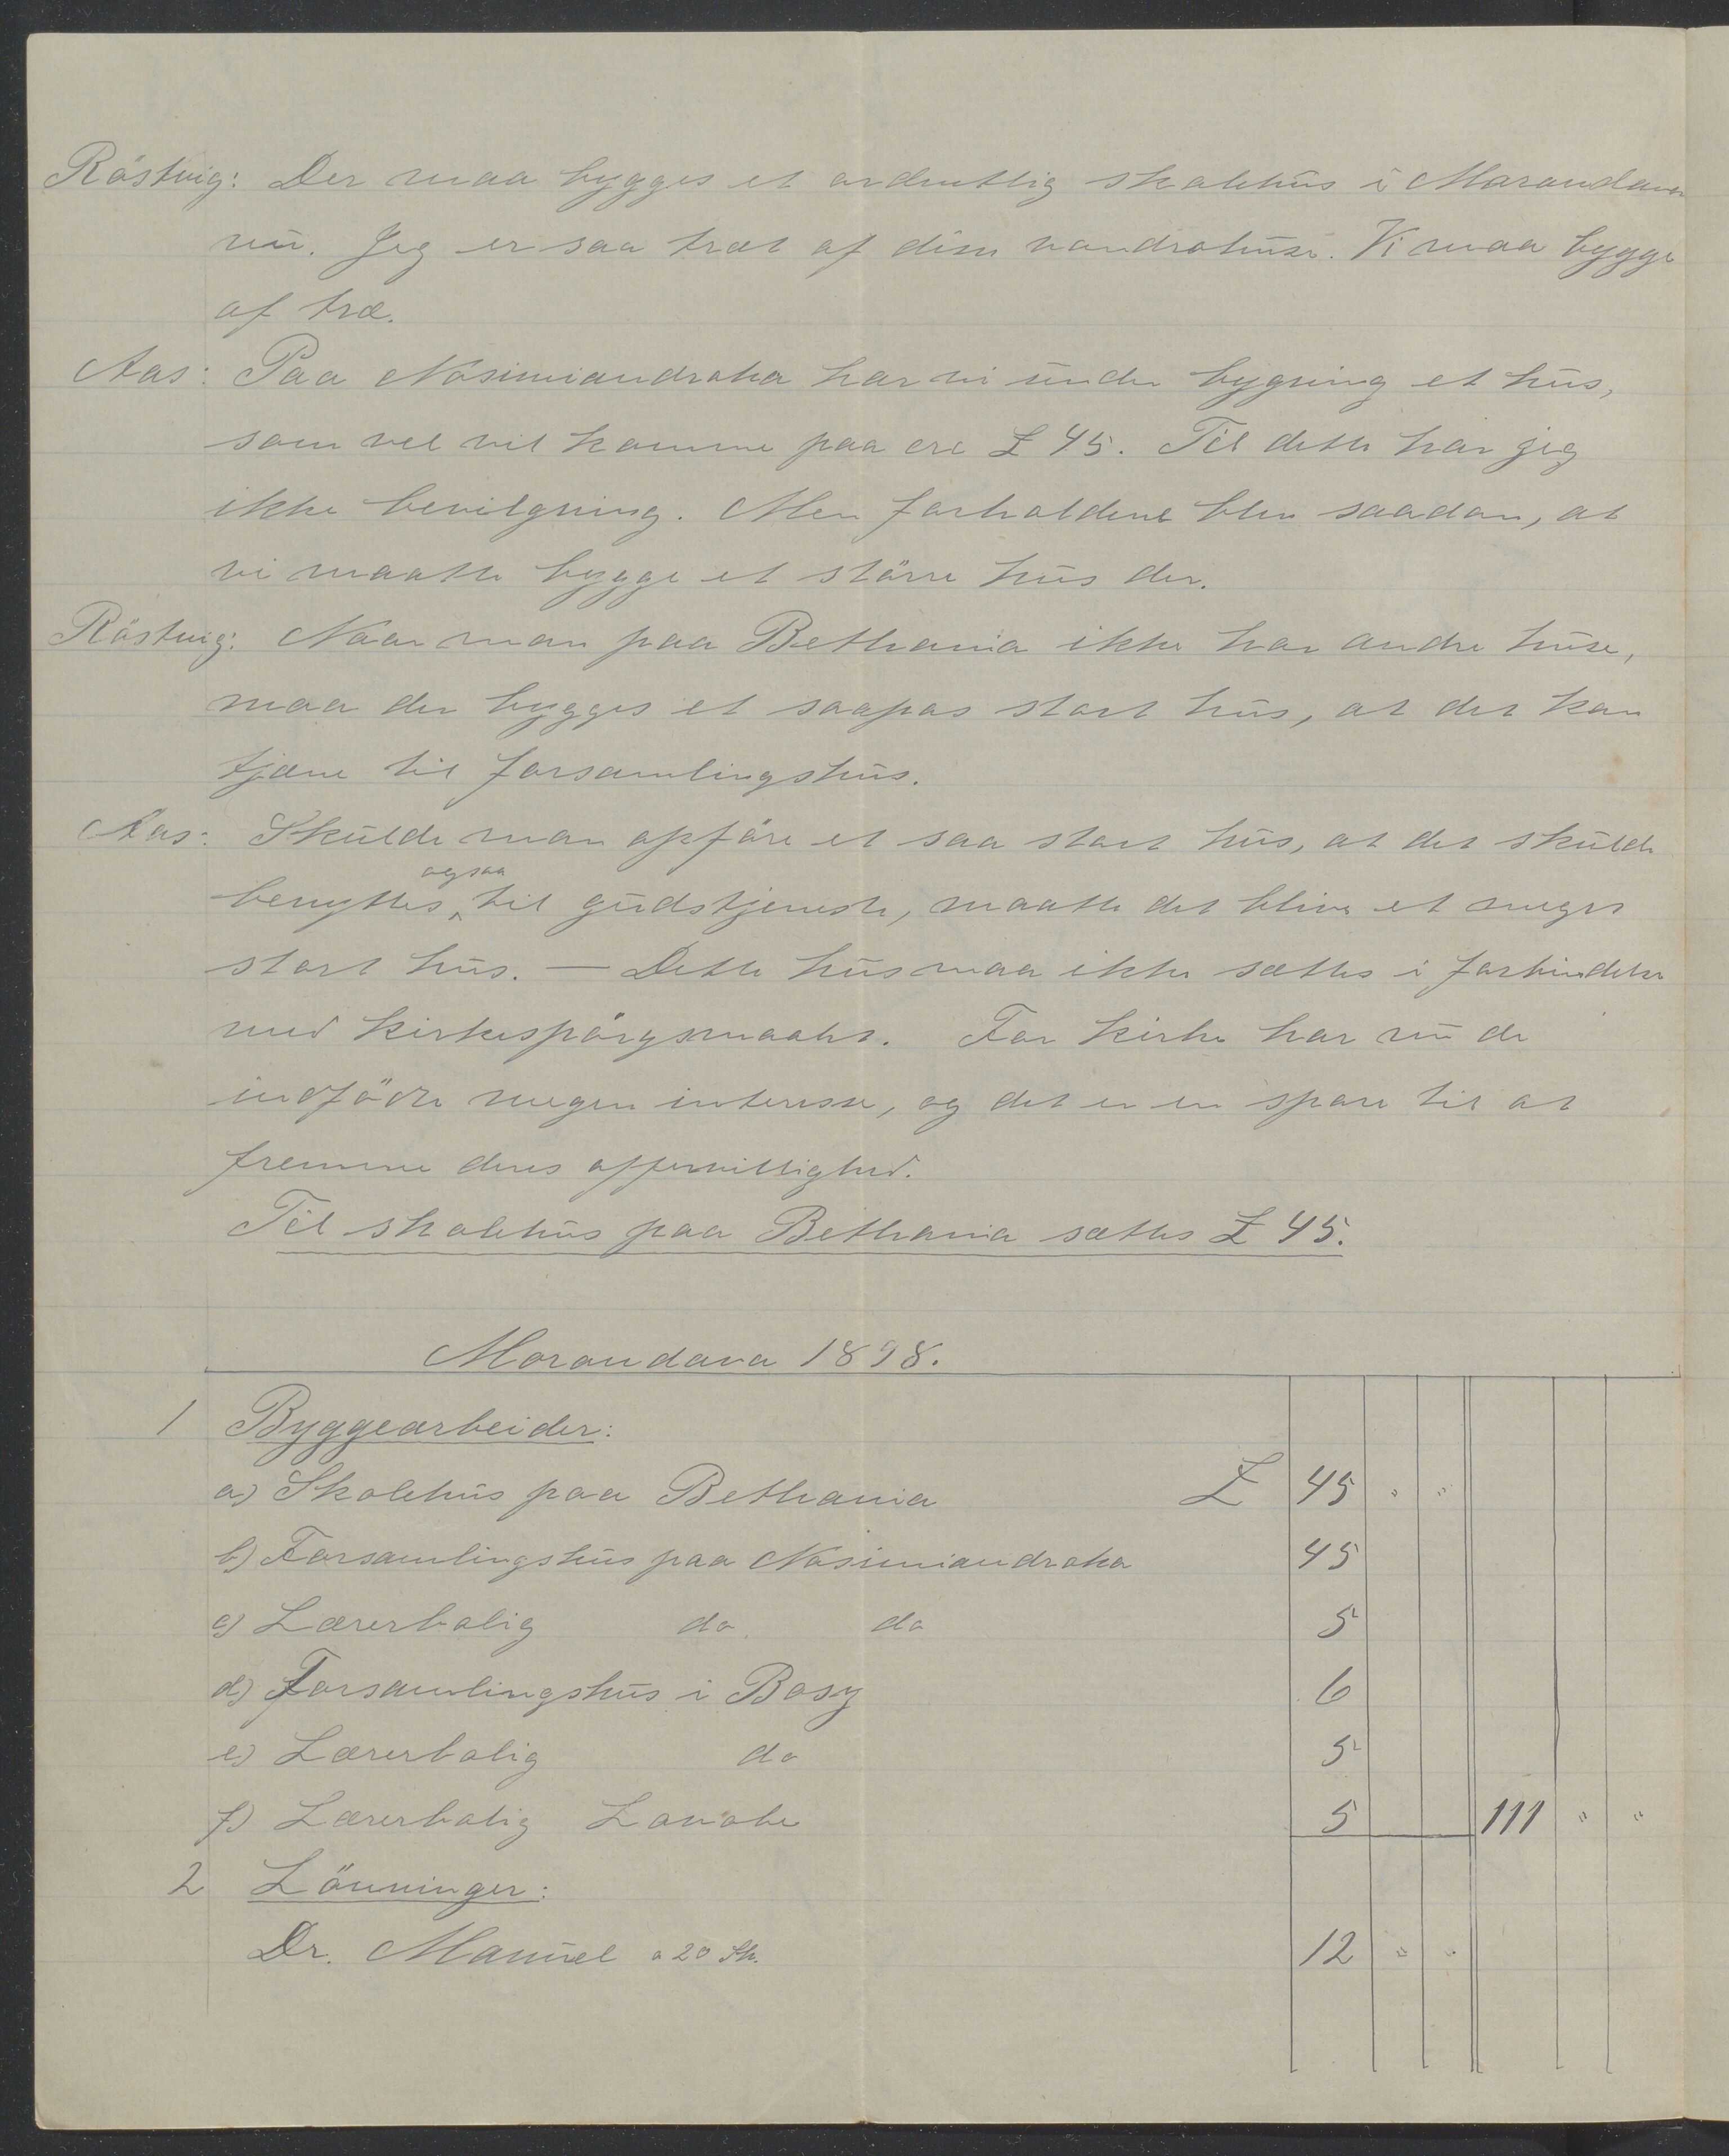 Röstvig: Der maa bygges et ordentlig skolehus i Morondava
nu. Jeg er saa træt af disse vandrohuse. Vi maa bygge
af træ.
Aas: Paa Nosimiandroka har vi under bygning et hus,
som vel vil komme paa ca £ 45. Til dette har jeg
ikke bevilgning. Men forholdene blev saadan, at
vi maatte bygge et större hus der.
Röstvig: Naar man paa Bethania ikke har andre huse,
maa der bygges et saapas stort hus, at det kan
tjene til forsamlingshus.
Aas: Skulde man opföre et saa stort hus, at det skulde
benyttes ogsaa til gudstjeneste, maatte det blive et meget
stort hus. — Dette hus maa ikke sættes i forbindelse
med kirkespörgsmaalet. For kirke har nu de
indfödte megen interesse, og det er en spore til at
fremme deres offervillighed.
Til skolehus paa Bethania sættes £ 45.
Morondava 1898.
1 Byggearbeider:
a) Skolehus paa Bethania £ 45 " "
b) Forsamlingshus paa Nosimiandroka 45
c) Lærerbolig do do 5
d) Forsamlingshus i Bosy 6
e) Lærerbolig do 5
f) Lærerbolig Lovobe 5 111 " "
2 Lönninger:
Dr. Manuel a 20 Sh. 12 " "